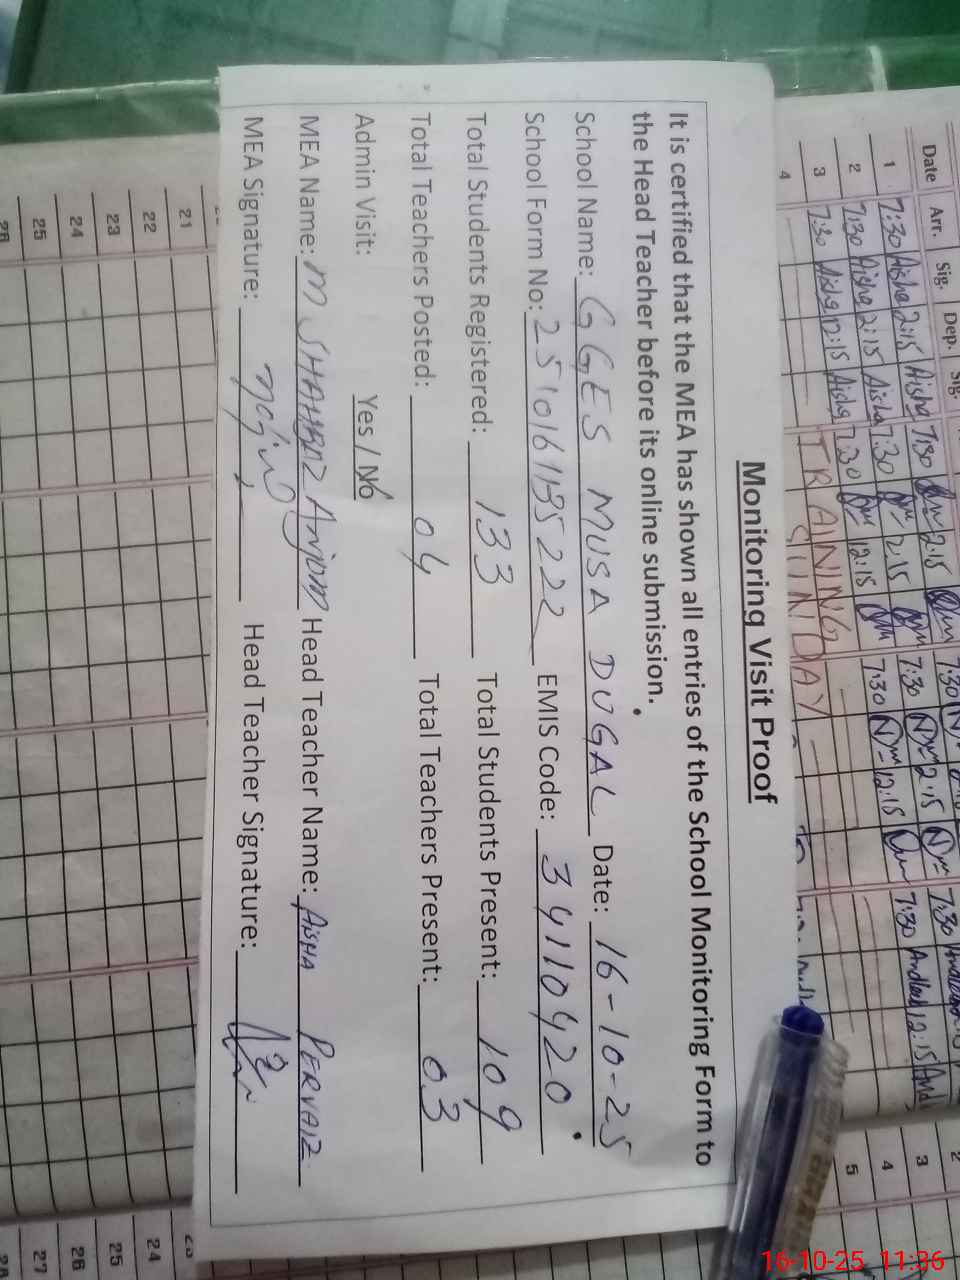 Monitoring Visit Proof
It is certified that the MEA has shown all entries of the School Monitoring Form to
the Head Teacher before its online submission.
School Name: GGES MUSA DUGAL Date: 16-10-25
School Form No: EMIS Code: 34110420
Total Students Registered: 133 Total Students Present: 109
Total Teachers Posted: 04 Total Teachers Present: 03
Admin Visit: Yes / No
MEA Name: M SHAHBAZ Anjum Head Teacher Name: AISHA PERVAIZ
MEA Signature: Head Teacher Signature:
Date Arr. Sig. Dep. Sig.
1 7:30 Aisha 2:15 Aisha 7:30 2:15 7:30
2 7:30 Aisha 2:15 Aisha 7:30 2:15 7:30 2:15 7:30
3 7:30 Aisha 12:15 Aisha 7:30 12:15 7:30 12:15 7:30 12:15
4 TRAINING
SUNDAY
2
3
4
5
21
22
23
24
25
26
24
25
26
27
28
16-10-25 11:36